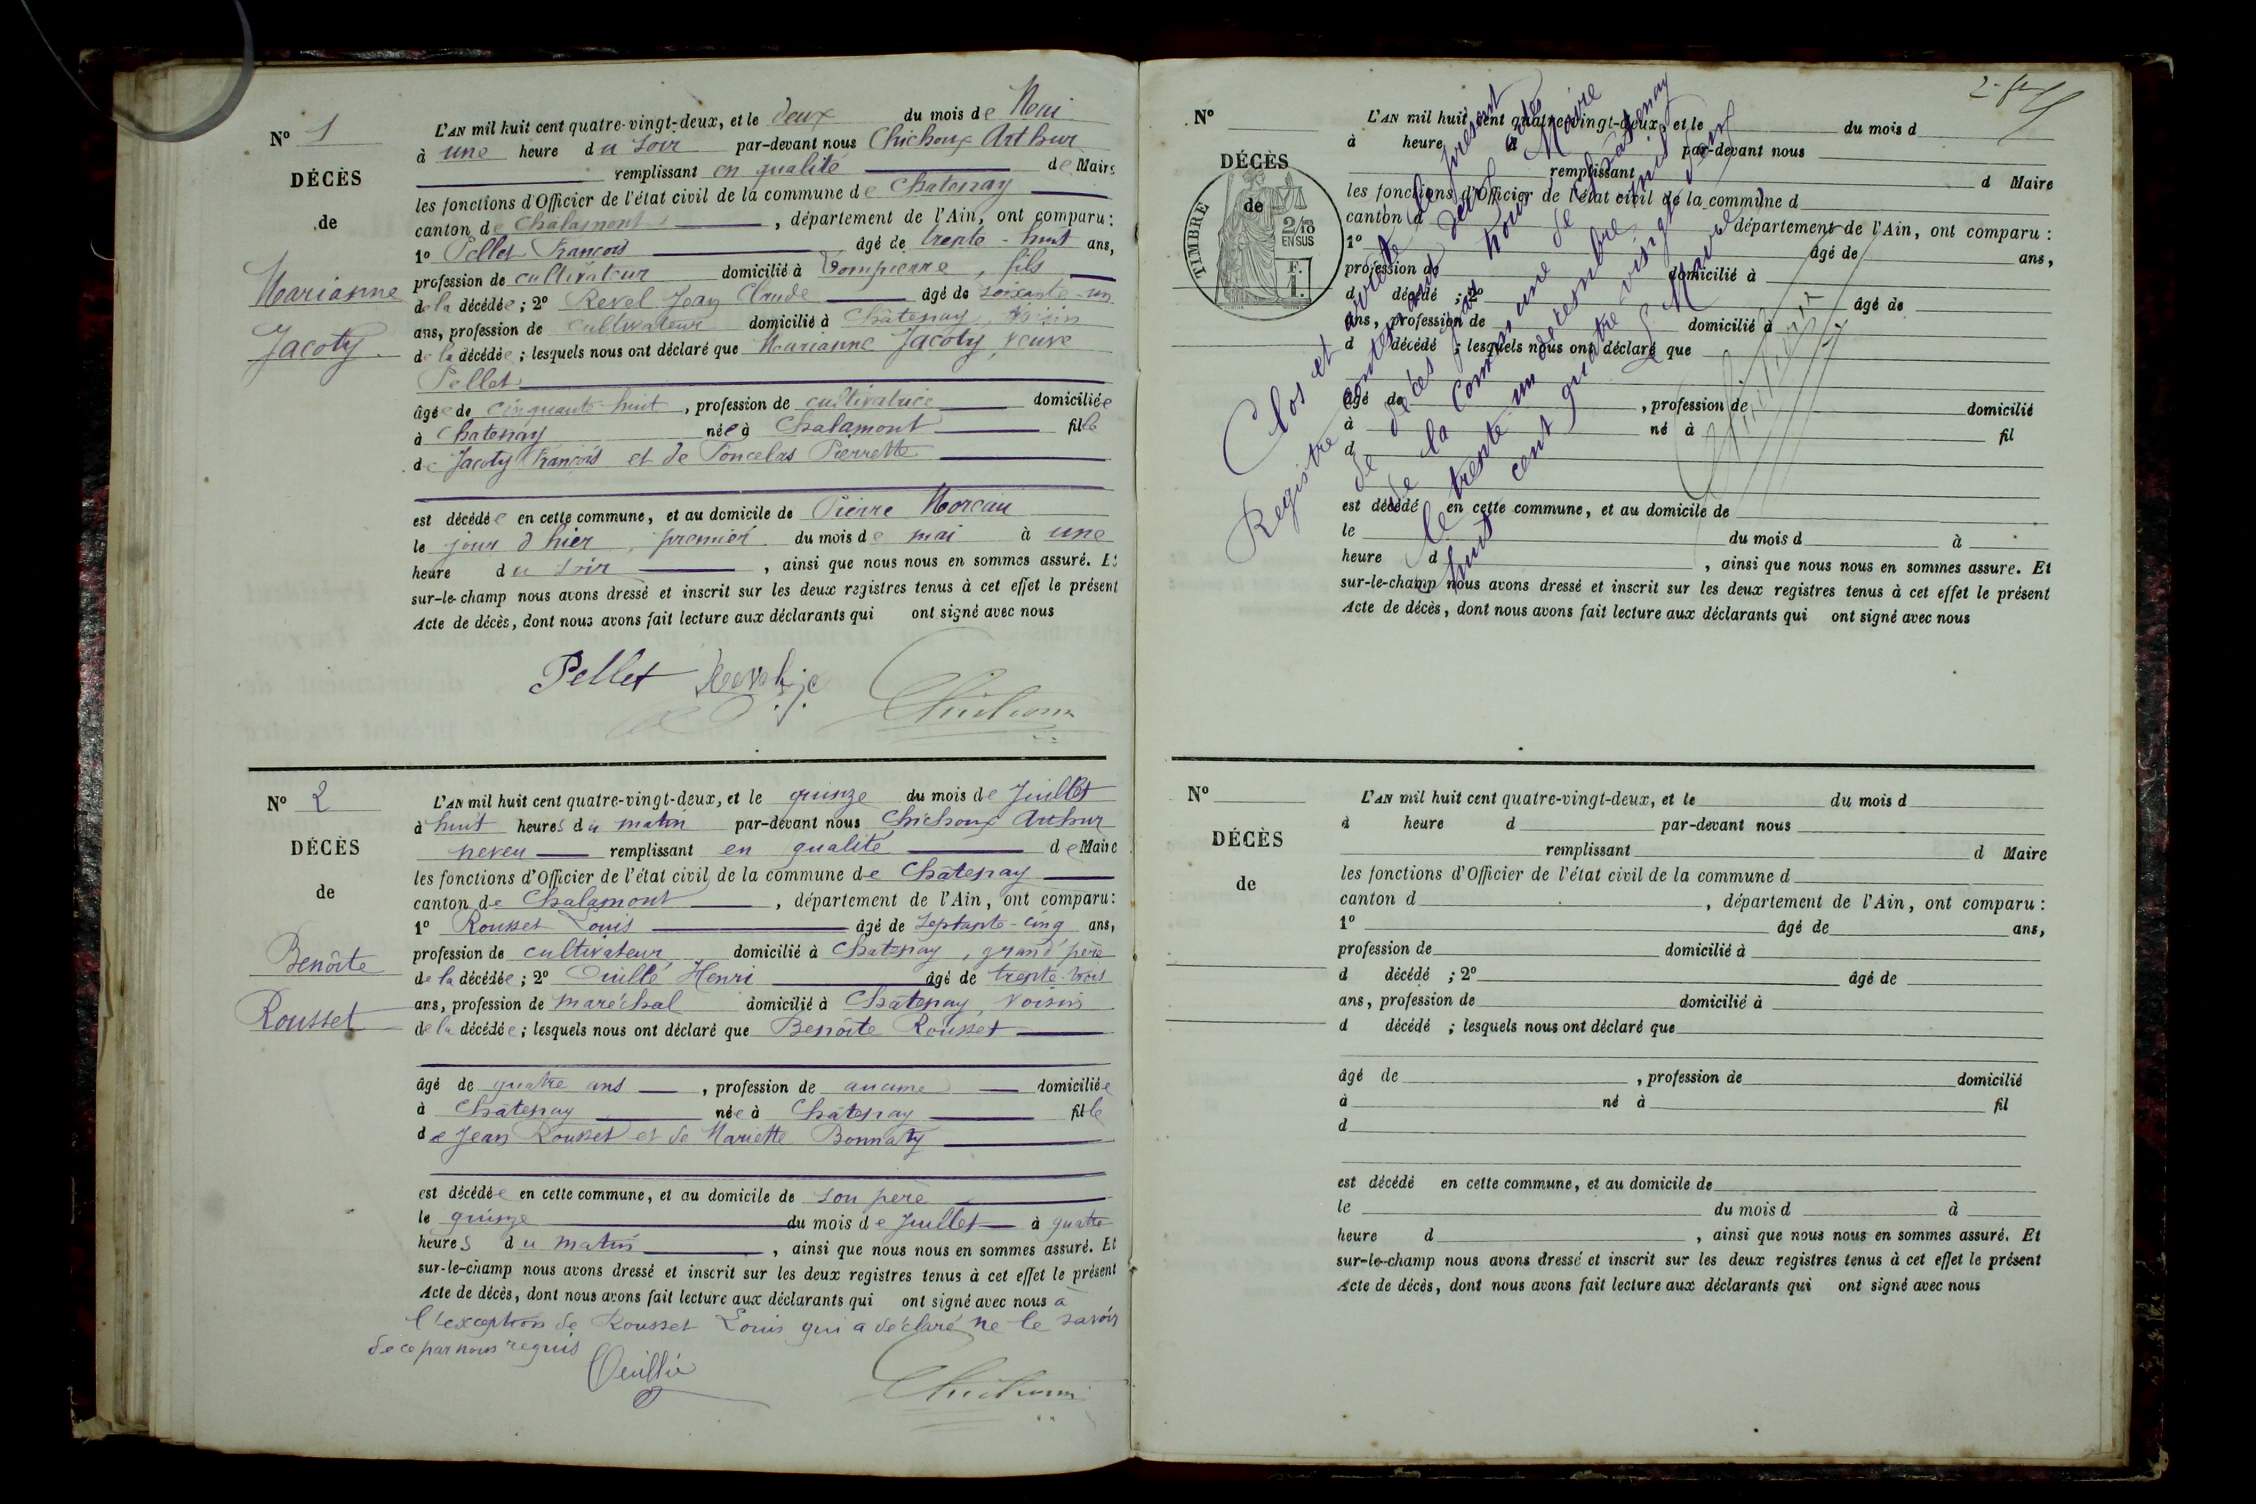 N° 1
DÉCÈS
de
Marianne
Jacoty
L'AN mil huit cent quatre-vingt-deux, et le deux du mois de Mai
à une heure du soir par-devant nous Chichoux Arthur
remplissant en qualité de Maire
les fonctions d'Officier de l'état civil de la commune de Chatenay
canton de Chalamont, département de l'Ain, ont comparu :
1° Pellet François âgé de trente-huit ans,
profession de cultivateur domicilié à Dompierre, fils
de la décédée ; 2° Revel Jean Claude âgé de soixante-un
ans, profession de cultivateur domicilié à Châtenay, voisin
de la décédée ; lesquels nous ont déclaré que Marianne Jacoty, veuve
Pellet
âgée de cinquante-huit, profession de cultivatrice domiciliée
à Chatenay née à Chalamont fille
de Jacoty François et de Poncelas Pierrette
est décédée en cette commune, et au domicile de Pierre Moreau
le jour d'hier, premier du mois de mai à une
heure du soir, ainsi que nous nous en sommes assuré. Et
sur-le-champ nous avons dressé et inscrit sur les deux registres tenus à cet effet le présent
Acte de décès, dont nous avons fait lecture aux déclarants qui ont signé avec nous
Pellet Revel j c Chichoux
N° 2
DÉCÈS
de
Benoîte
Rousset
L'AN mil huit cent quatre-vingt-deux, et le quinze du mois de Juillet
à huit heures du matin par-devant nous Chichoux Arthur
neveu remplissant en qualité de Maire
les fonctions d'Officier de l'état civil de la commune de Châtenay
canton de Chalamont, département de l'Ain, ont comparu :
1° Rousset Louis âgé de septante-cinq ans,
profession de cultivateur domicilié à Chatenay, grand père
de la décédée ; 2° Ouillé Henri âgé de trente-trois
ans, profession de maréchal domicilié à Châtenay, voisin
de la décédée ; lesquels nous ont déclaré que Benoîte Rousset
âgé de quatre ans, profession de aucune domiciliée
à Châtenay née à Châtenay fille
de Jean Rousset et de Mariette Bonnaty
est décédée en cette commune, et au domicile de son père
le quinze du mois de Juillet à quatre
heures du matin, ainsi que nous nous en sommes assuré. Et
sur-le-champ nous avons dressé et inscrit sur les deux registres tenus à cet effet le présent
Acte de décès, dont nous avons fait lecture aux déclarants qui ont signé avec nous à
l'exception de Rousset Louis qui a déclaré ne le savoir
de ce par nous requis
Ouillé Chichoux
N°
DÉCÈS
de
TIMBRE
2/10 EN SUS
F. 1.
L'AN mil huit cent quatre-vingt-deux, et le du mois d
à heure d par-devant nous
remplissant d Maire
les fonctions d'Officier de l'état civil de la commune d
canton d département de l'Ain, ont comparu :
1° âgé de ans,
profession de domicilié à
d décédé ; 2° âgé de
ans, profession de domicilié à
d décédé ; lesquels nous ont déclaré que
âgé de , profession de domicilié
à né à fil
d
est décédé en cette commune, et au domicile de
le du mois d à
heure d , ainsi que nous nous en sommes assuré. Et
sur-le-champ nous avons dressé et inscrit sur les deux registres tenus à cet effet le présent
Acte de décès, dont nous avons fait lecture aux déclarants qui ont signé avec nous
Clos et arrêté le présent
Registre contenant deux actes
de décès par nous Maire
de la commune de Châtenay
le trente un décembre mil
huit cent quatre vingt deux
Le Maire
N°
DÉCÈS
de
L'AN mil huit cent quatre-vingt-deux, et le du mois d
à heure d par-devant nous
remplissant d Maire
les fonctions d'Officier de l'état civil de la commune d
canton d , département de l'Ain, ont comparu :
1° âgé de ans,
profession de domicilié à
d décédé ; 2° âgé de
ans, profession de domicilié à
d décédé ; lesquels nous ont déclaré que
âgé de , profession de domicilié
à né à fil
d
est décédé en cette commune, et au domicile de
le du mois d à
heure d , ainsi que nous nous en sommes assuré. Et
sur-le-champ nous avons dressé et inscrit sur les deux registres tenus à cet effet le présent
Acte de décès, dont nous avons fait lecture aux déclarants qui ont signé avec nous